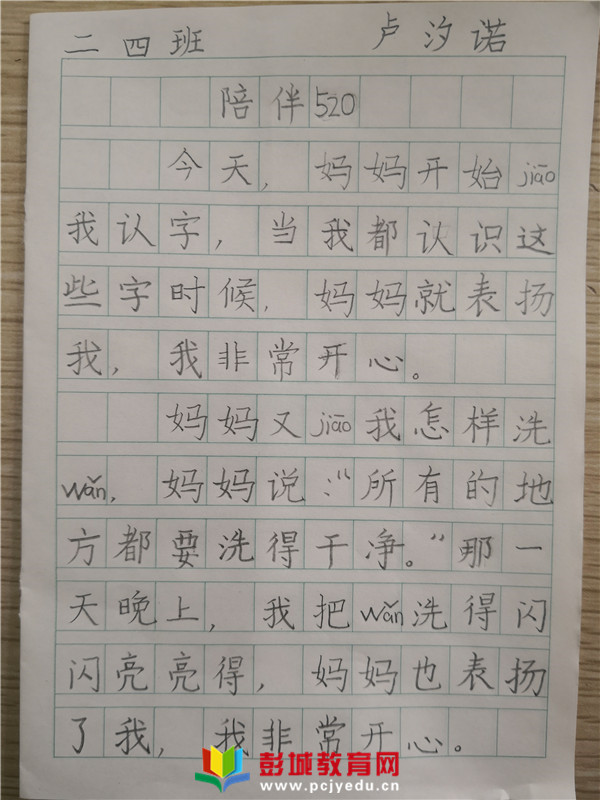 二四班 卢汐诺
陪伴520
今天，妈妈开始jiāo
我认字，当我都认识这
些字时候，妈妈就表扬
我，我非常开心。
妈妈又jiāo我怎样洗
wǎn，妈妈说：“所有的地
方都要洗得干净。”那一
天晚上，我把wǎn洗得闪
闪亮亮得，妈妈也表扬
了我，我非常开心。
彭城教育网
www.pcjyedu.cn